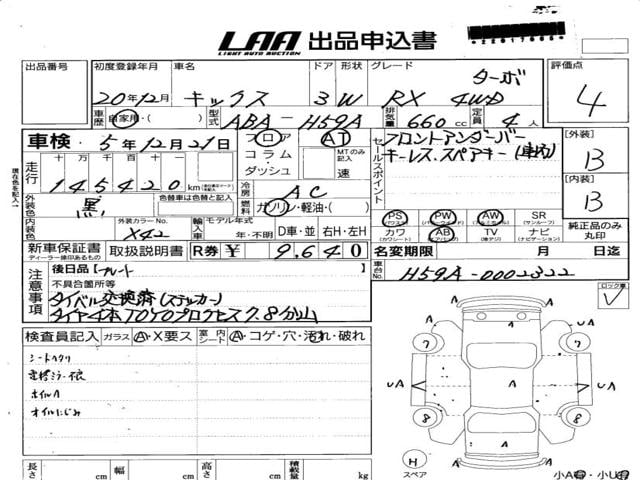 LAA 出品申込書
LIGHT AUTO AUCTION
出品番号 初度登録年月 車名 ドア 形状 グレード 評価点
20年12月 キックス 3 W RX ターボ 4WD 4
車歴 自家用・( ) 型式 ABA-H59A 排気量 660 cc 定員 4 人
車検 5年12月21日 フロア・コラム・ダッシュ AT MTのみ記入 速
セールスポイント フロントアンダーバー
キーレス.スペアキー(車内)
[外装] B
[内装] B
走行 十 万 千 百 十
145420 km
冷房 AC
燃料 ガソリン・軽油・( )
外装色 黒 色替車は色替と記入
内装色 外装カラーNo. X42 輸入車 モデル年式 年・不明 D車・並 右H・左H
PS PW AW SR (サンルーフ)
カワ (カワシート) AB TV (地デジ) ナビ (ナビゲーション)
純正品のみ丸印
新車保証書 ディーラー捺印あるもの 取扱説明書 R券 ¥ 9,640
名変期限 月 日迄
車台No. H59A-0002322
注意事項 後日品[プレート
不具合箇所等
タイベル交換済(ステッカー)
タイヤ4本TOYOプロクセス 7.8分山
ロック有
検査員記入 ガラス A・X要ス 室内シート A・コゲ・穴・汚れ・破れ
シートヘタリ
ホイルA
オイルにじみ
7 7
UA A A UA
8 8
H スペア
長さ cm 幅 cm 高さ cm 積載量 kg